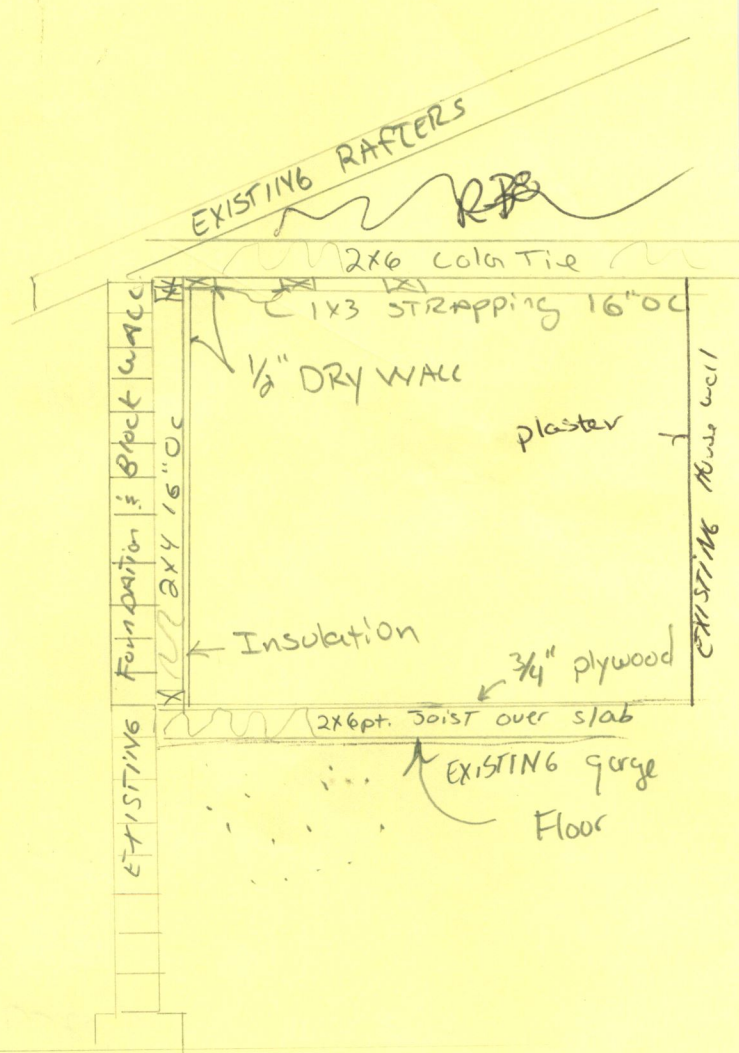 EXISTING RAFTERS
2x6 Colar Tie
1x3 STRAPPING 16" OC
1/2" DRY WALL
plaster
EXISTING House wall
EXISTING Foundation & Block WALL
2x4 16" OC
Insulation
3/4" plywood
2x6 pt. Joist over slab
EXISTING garge
Floor